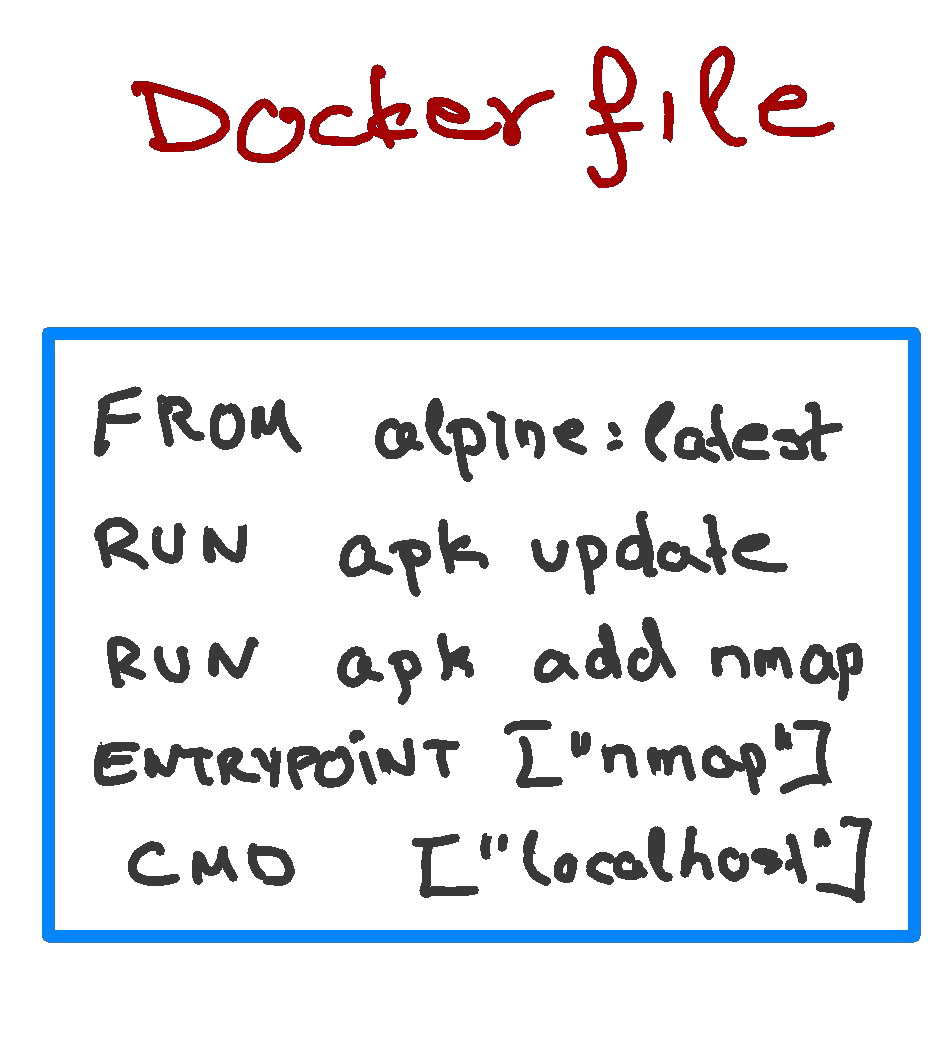 Dockerfile
FROM alpine:latest
RUN apk update
RUN apk add nmap
ENTRYPOINT ["nmap"]
CMD ["localhost"]